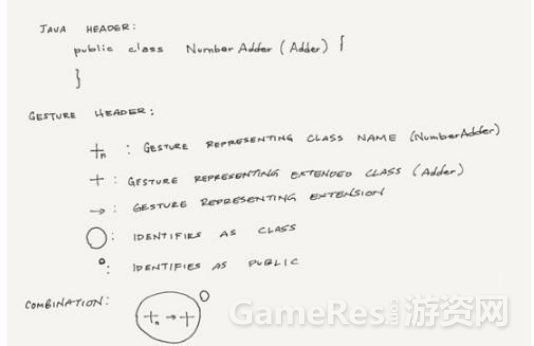 JAVA HEADER:
public class NumberAdder (Adder) {
}
GESTURE HEADER:
+n : GESTURE REPRESENTING CLASS NAME (NumberAdder)
+ : GESTURE REPRESENTING EXTENDED CLASS (Adder)
→ : GESTURE REPRESENTING EXTENSION
○ : IDENTIFIES AS CLASS
° : IDENTIFIES AS PUBLIC
COMBINATION: +n → +
GameRes游资网
.com